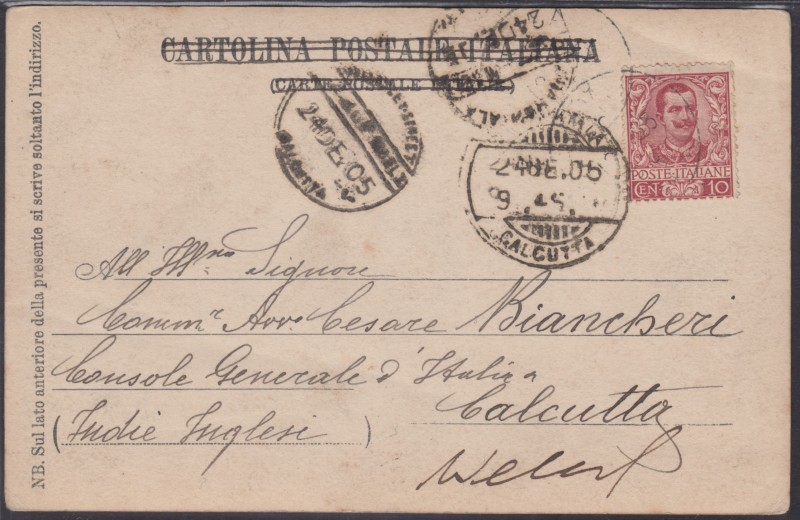 CARTOLINA POSTALE ITALIANA
(CARTE POSTALE D'ITALIE)
POSTE·ITALIANE
CEN 10
24 DE. 05
CALCUTTA
24 DE. 05
CALCUTTA
24 DE
All' Ill.mo Signore
Comm.r Avv.o Cesare Biancheri
Console Generale d'Italia
Calcutta
(Indie Inglesi)
NB. Sul lato anteriore della presente si scrive soltanto l'indirizzo.